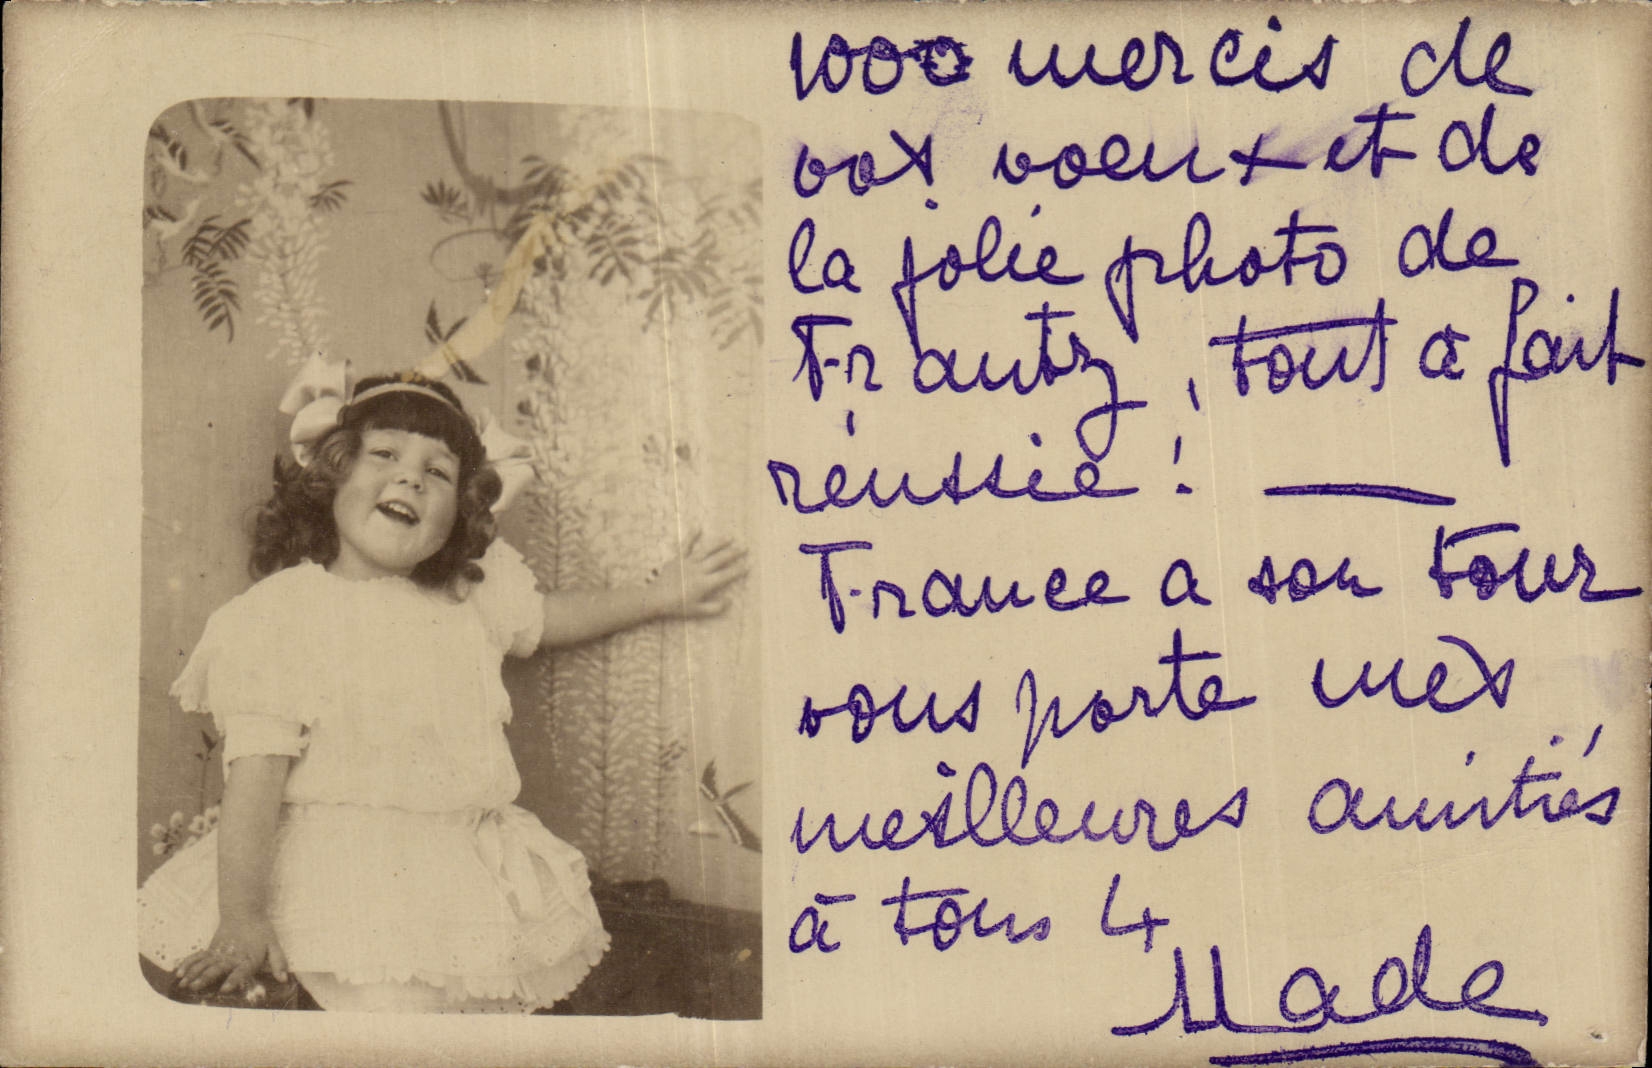 1000 mercis de
vos voeux et de
la jolie photo de
Frantz, tout à fait
réussie ! —
France a son tour
vous porte mes
meilleures amitiés
à tous 4
Made